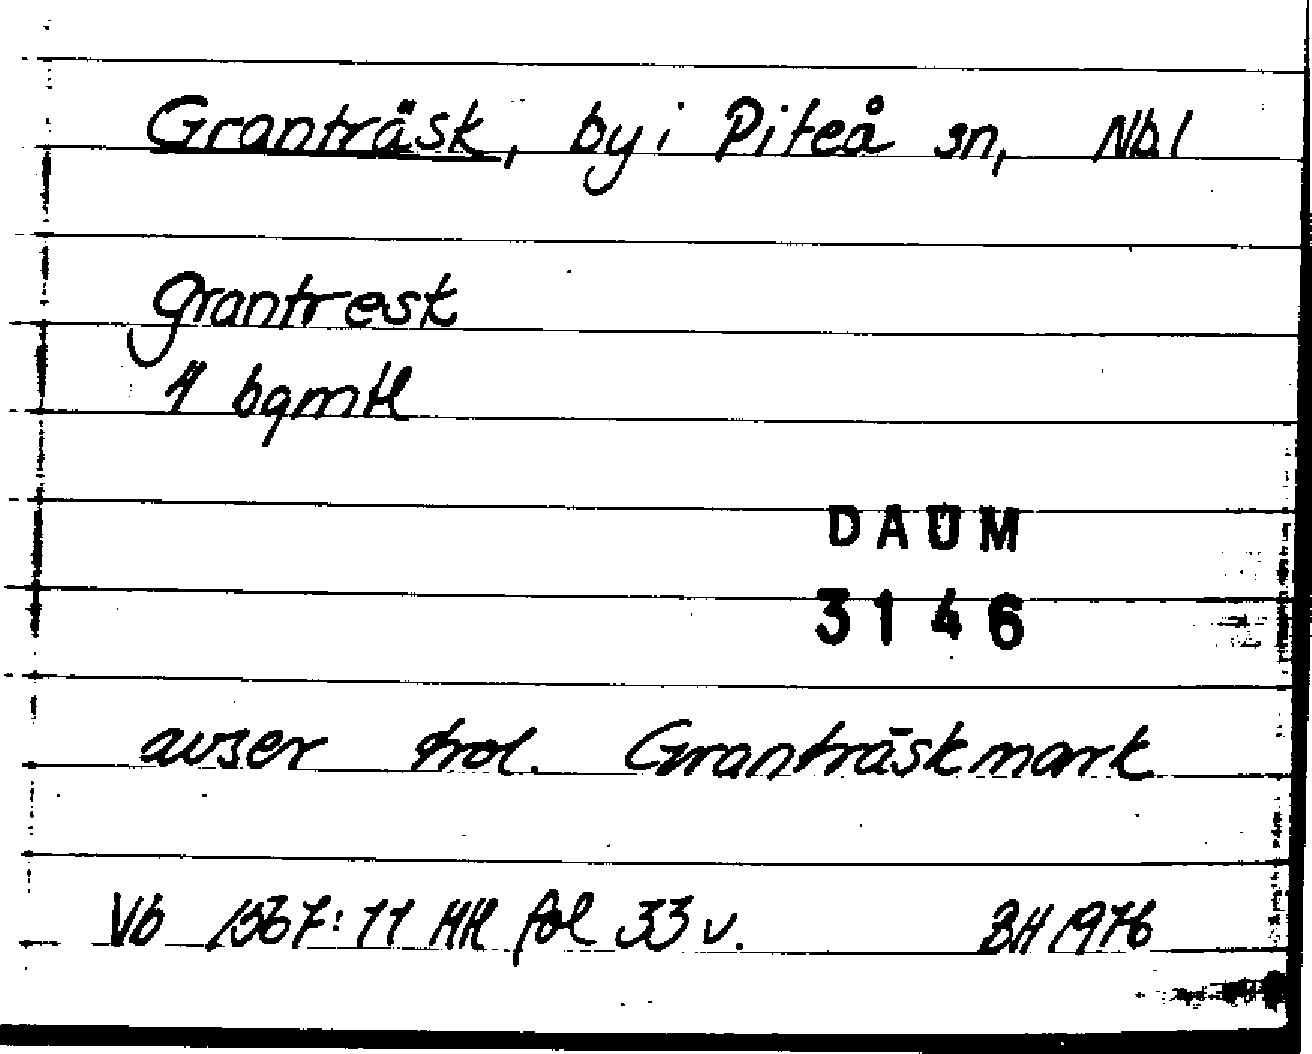 Granträsk, by i Piteå sn, Nbl
grantresk
4 bgmtl
DAUM
3146
avser trol. Granträskmark
Vb 1567:11 Mtl fol 33 v. BH 1976